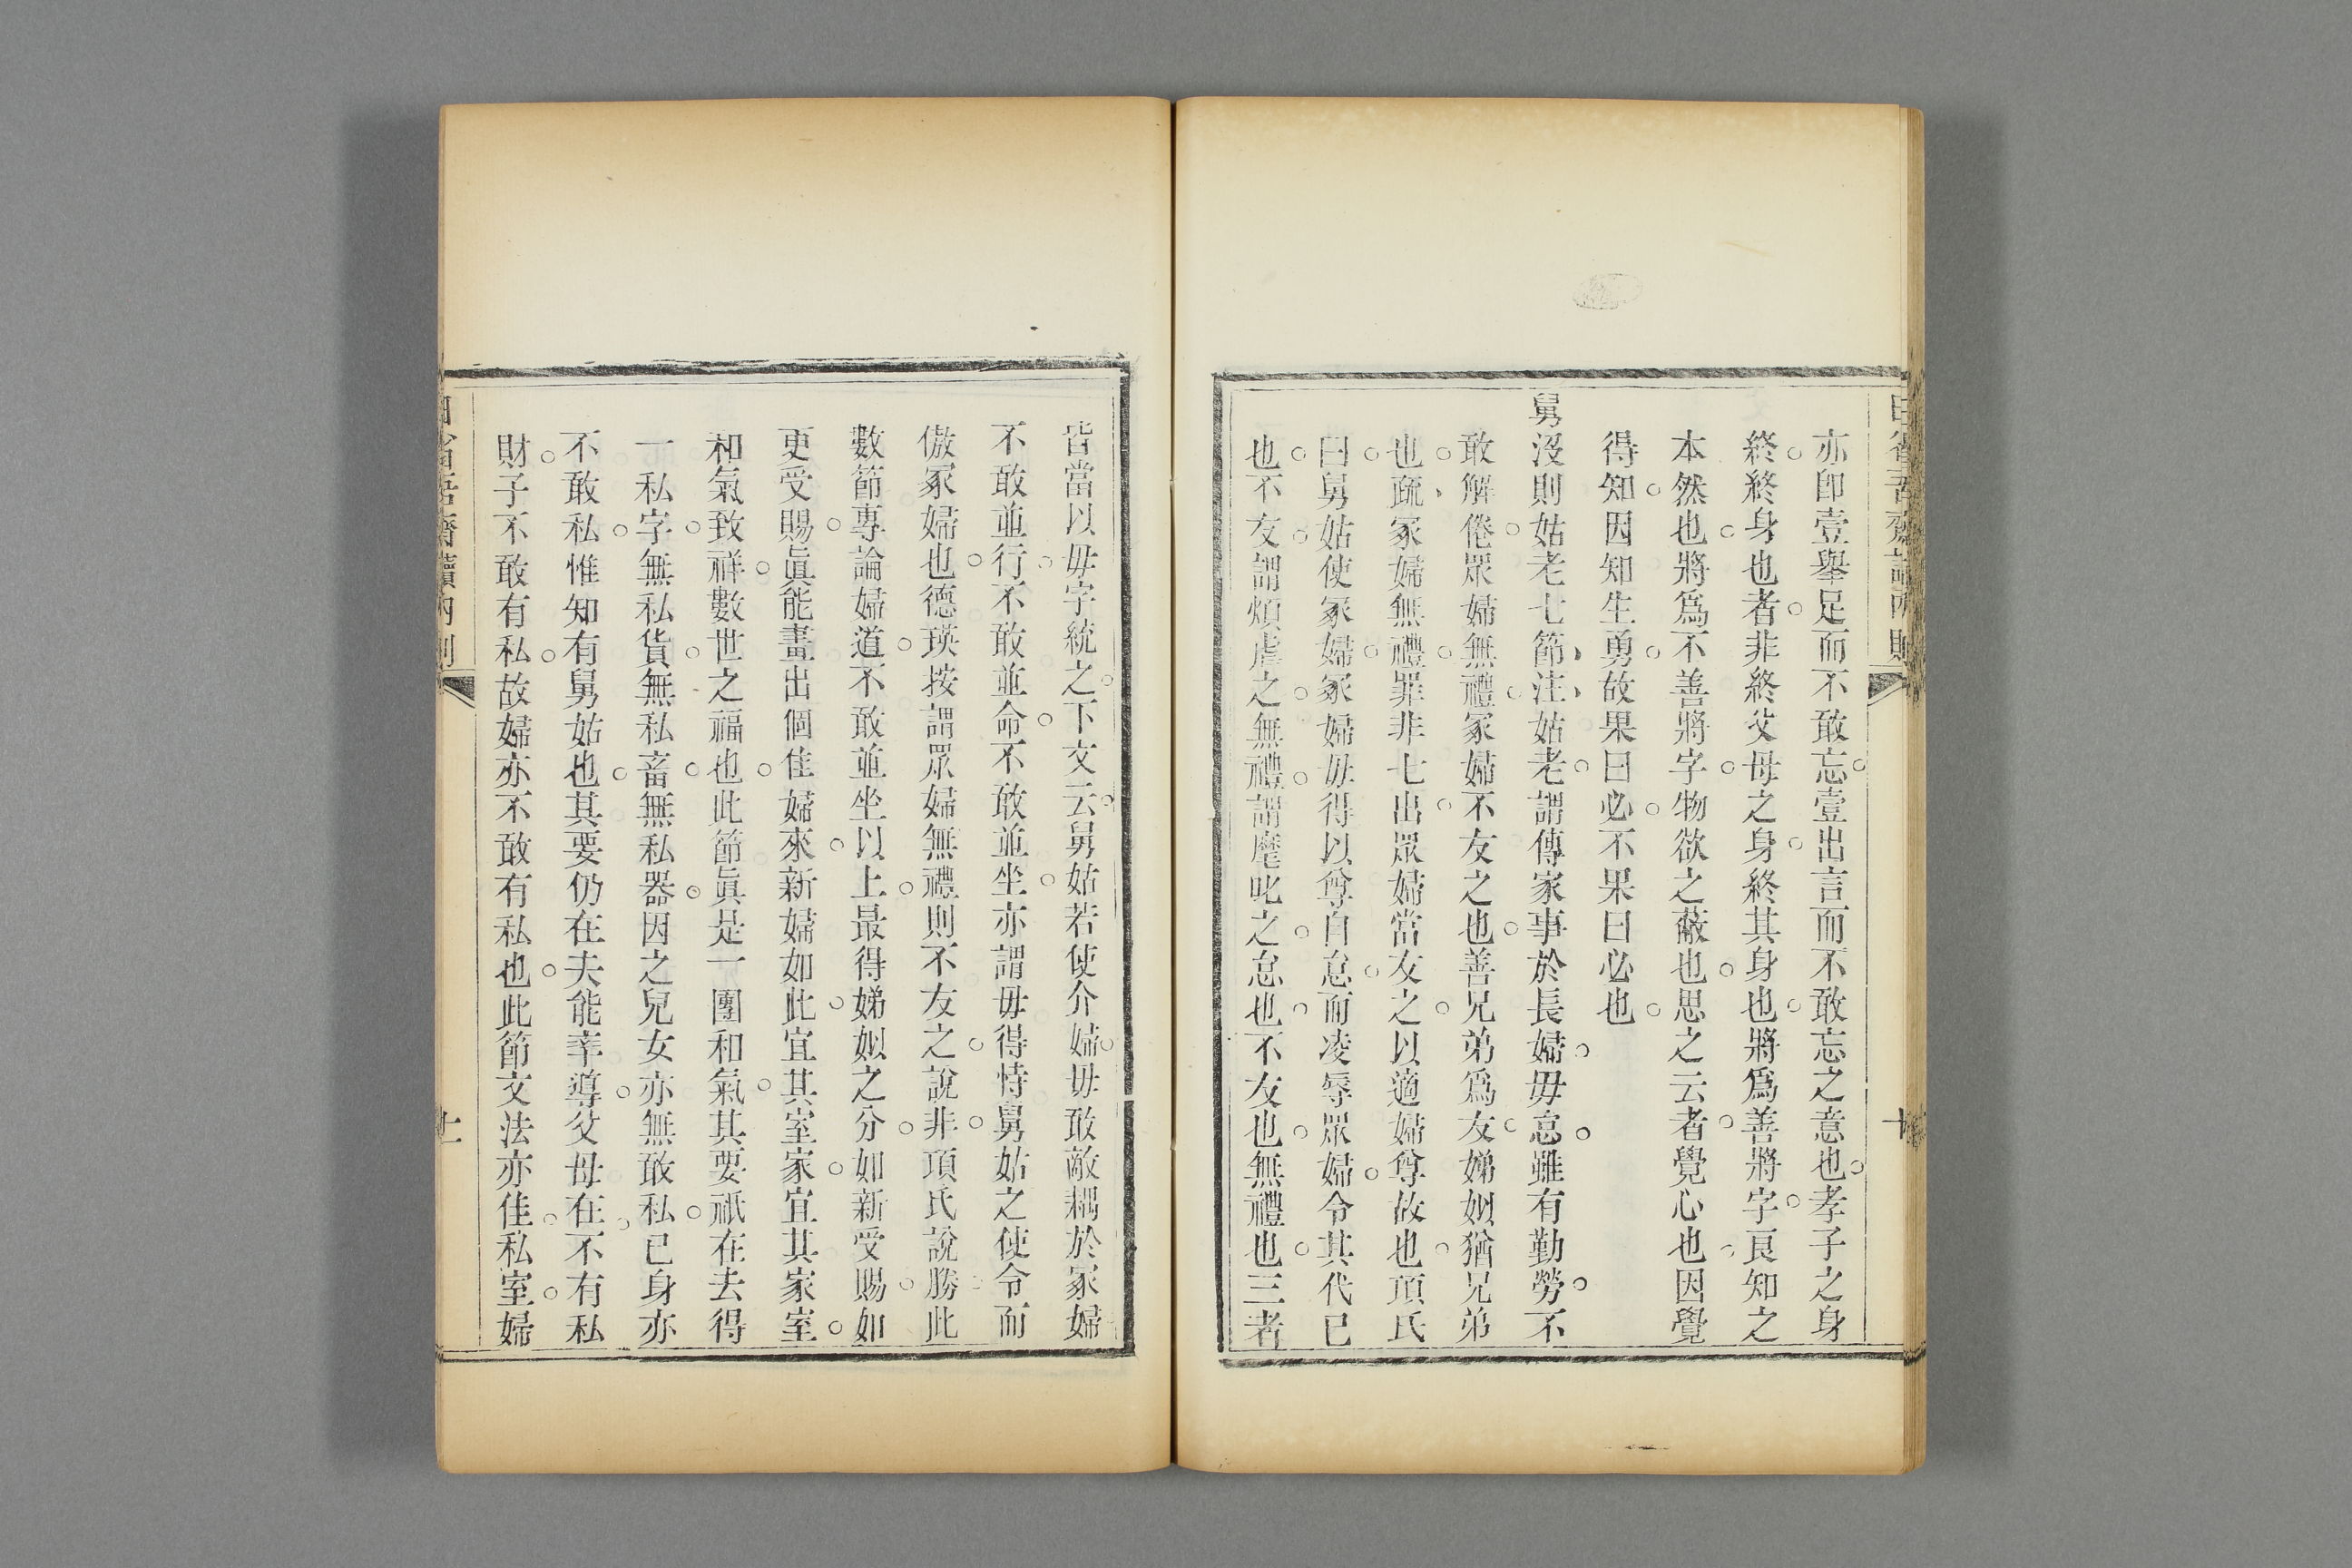 亦卽壹舉足而不敢忘壹出言而不敢忘之意也孝子之身
終終身也者非終父母之身終其身也將爲善將字良知之
本然也將爲不善將字物欲之蔽也思之云者覺心也因覺
得知因知生勇故果曰必不果曰必也
舅沒則姑老七節注姑老謂傳家事於長婦毋怠雖有勤勞不
敢解倦眾婦無禮冢婦不友之也善兄弟爲友娣姒猶兄弟
也疏冢婦無禮罪非七出眾婦當友之以適婦尊故也項氏
曰舅姑使冢婦冢婦毋得以尊自怠而凌辱眾婦令其代已
也不友謂煩虐之無禮謂麾叱之怠也不友也無禮也三者
皆當以毋字統之下文云舅姑若使介婦毋敢敵耦於冢婦
不敢並行不敢並命不敢並坐亦謂毋得恃舅姑之使令而
傲冢婦也德瑛按謂眾婦無禮則不友之說非項氏說勝此
數節專論婦道不敢並坐以上最得娣姒之分如新受賜如
更受賜眞能畫出個佳婦來新婦如此宜其室家宜其家室
和氣致祥數世之福也此節眞是一團和氣其要祇在去得
一私字無私貨無私畜無私器因之兒女亦無敢私已身亦
不敢私惟知有舅姑也其要仍在夫能率導父母在不有私
財子不敢有私故婦亦不敢有私也此節文法亦佳私室婦